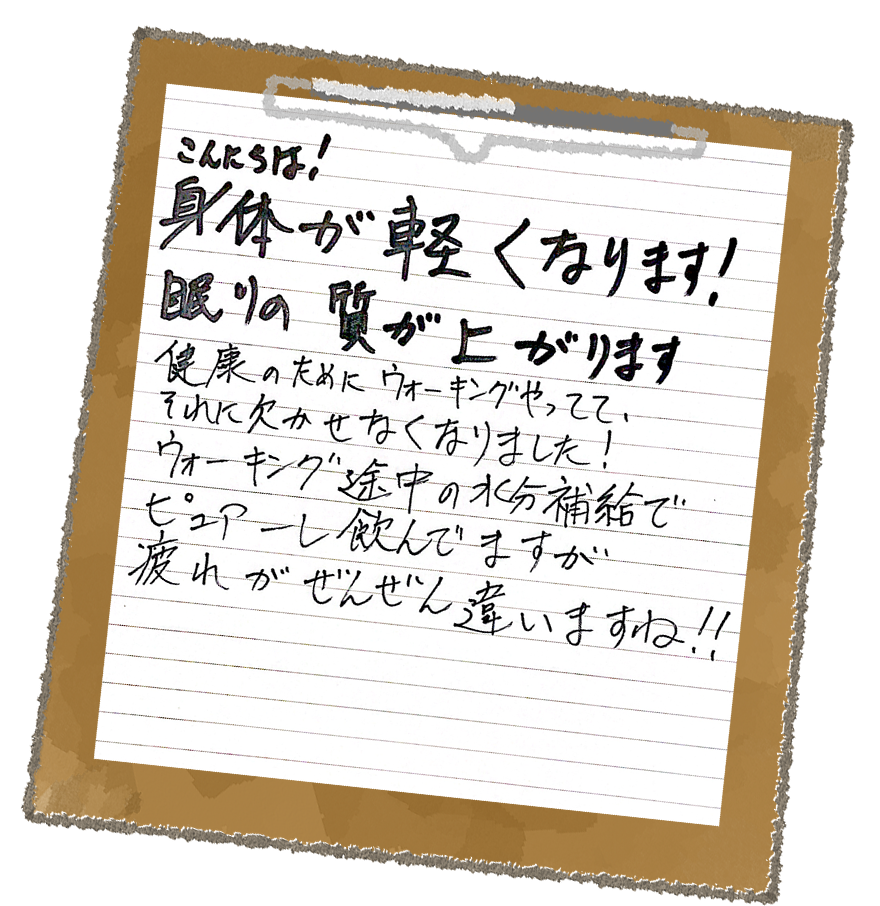 こんにちは!
身体が軽くなります!
眠りの質が上がります
健康のためにウォーキングやってて、
それに欠かせなくなりました!
ウォーキング途中の水分補給で
ピュアーし飲んでますが
疲れがぜんぜん違いますね!!